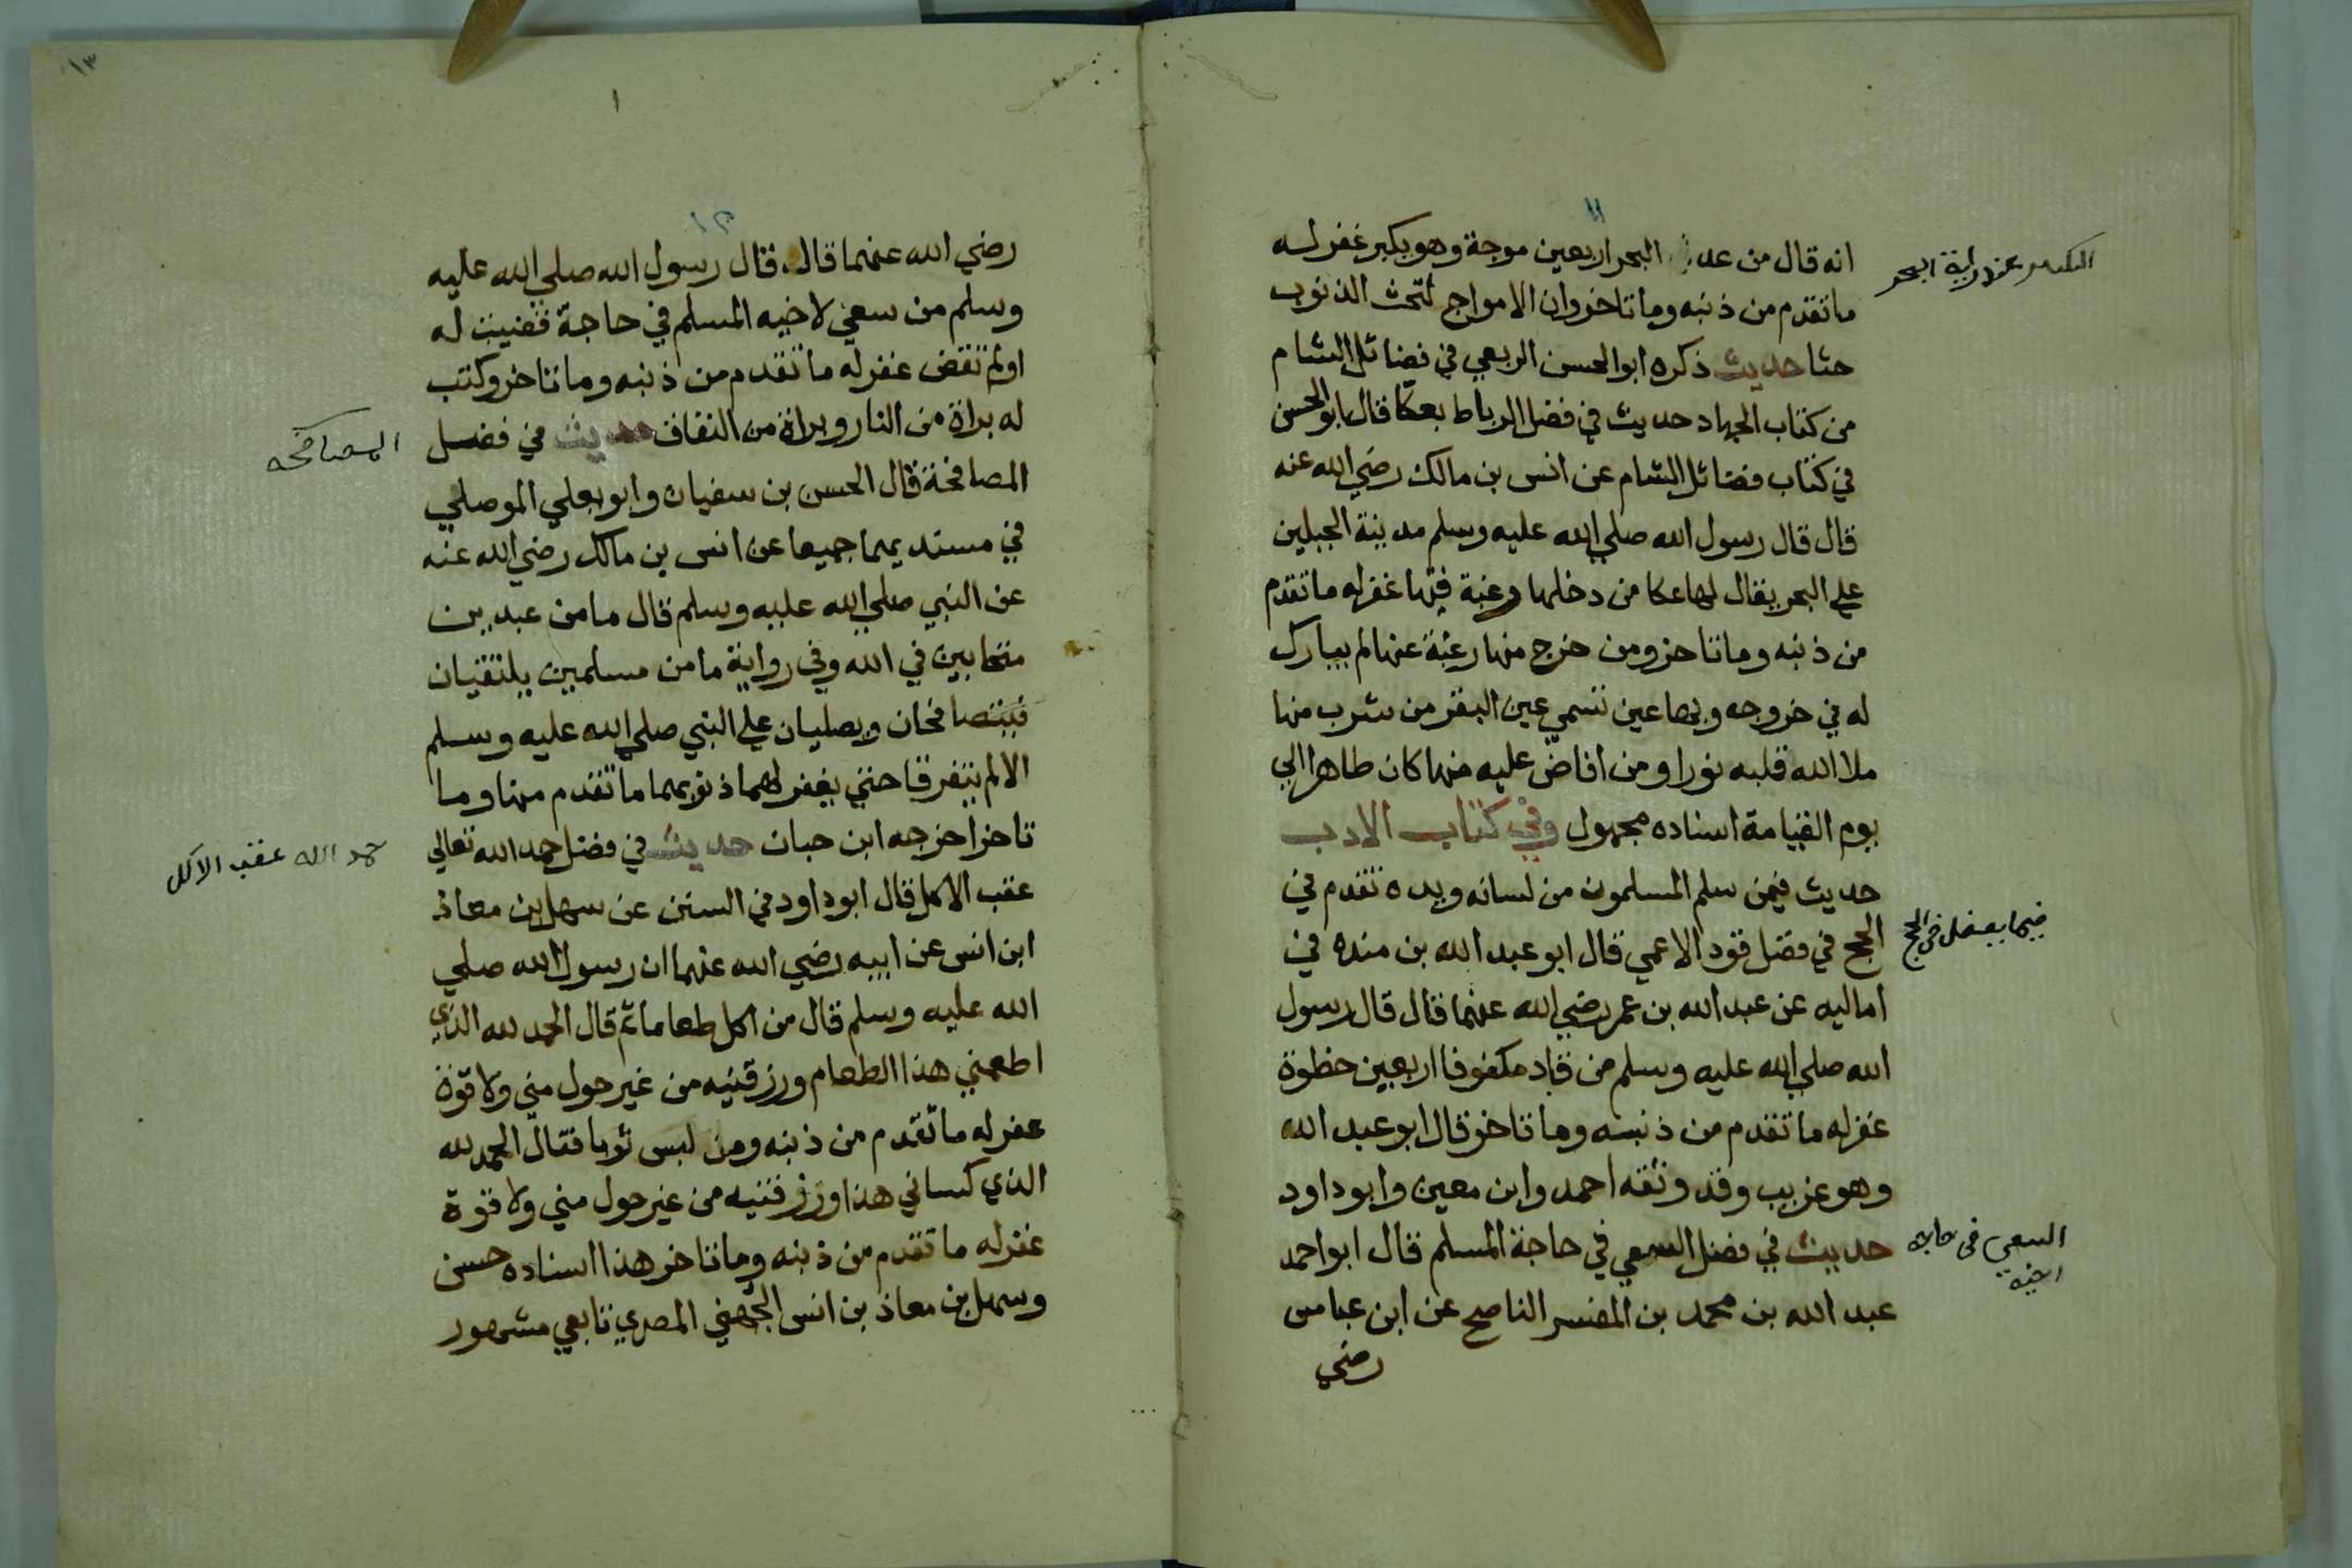 ١١
انه قال من عد البحر اربعين موجة وهو يكبر غفر له
ما تقدم من ذنبه وما تاخر وان الامواج لتحث الذنوب
حثا حديث ذكره ابو الحسن الربعي في فضائل الشام
من كتاب الجهاد حديث في فضل الرباط بعكا قال ابو الحسن
في كتاب فضائل الشام عن انس بن مالك رضي الله عنه
قال قال رسول الله صلي الله عليه وسلم مدينة الجبلين
علي البحر يقال لها عكا من دخلها رغبة فيها غفر له ما تقدم
من ذنبه وما تاخر ومن خرج منها رغبة عنها لم يبارك
له في خروجه وبها عين تسمي عين البقر من شرب منها
ملا الله قلبه نورا ومن افاض عليه منها كان طاهرا الي
يوم القيامة اسناده مجهول وفي كتاب الادب
حديث فيمن سلم المسلمون من لسانه ويده تقدم في
الحج في فضل قود الاعمي قال ابو عبد الله بن منده في
اماليه عن عبد الله بن عمر رضي الله عنهما قال قال رسول
الله صلي الله عليه وسلم من قاد مكفوفا اربعين خطوة
غفر له ما تقدم من ذنبه وما تاخر قال ابو عبد الله
وهو غريب وقد وثقه احمد وابن معين وابو داود
حديث في فضل السعي في حاجة المسلم قال ابو احمد
عبد الله بن محمد بن المفسر الناصح عن ابن عباس
رضي
عند راية البحر
فيما يفعل في الحج
السعي في حاجة
اخيه
١٣
١
١٢
رضي الله عنهما قال قال رسول الله صلي الله عليه
وسلم من سعي لاخيه المسلم في حاجة قضيت له
او لم تقض غفر له ما تقدم من ذنبه وما تاخر وكتب
له براة من النار وبراة من النفاق حديث في فضل
المصافحة قال الحسن بن سفيان وابو يعلي الموصلي
في مسنديهما جميعا عن انس بن مالك رضي الله عنه
عن النبي صلي الله عليه وسلم قال ما من عبدين
متحابين في الله وفي رواية ما من مسلمين يلتقيان
فيتصافحان ويصليان علي النبي صلي الله عليه وسلم
الا لم يتفرقا حتي يغفر لهما ذنوبهما ما تقدم منها وما
تاخر اخرجه ابن حبان حديث في فضل حمد الله تعالي
عقب الاكل قال ابو داود في السنن عن سهل بن معاذ
ابن انس عن ابيه رضي الله عنهما ان رسول الله صلي
الله عليه وسلم قال من اكل طعاما ثم قال الحمد لله الذي
اطعمني هذا الطعام ورزقنيه من غير حول مني ولا قوة
غفر له ما تقدم من ذنبه ومن لبس ثوبا فقال الحمد لله
الذي كساني هذا ورزقنيه من غير حول مني ولا قوة
غفر له ما تقدم من ذنبه وما تاخر هذا اسناده حسن
وسهل بن معاذ بن انس الجهني المصري تابعي مشهور
المصافحه
حمد الله عقب الاكل